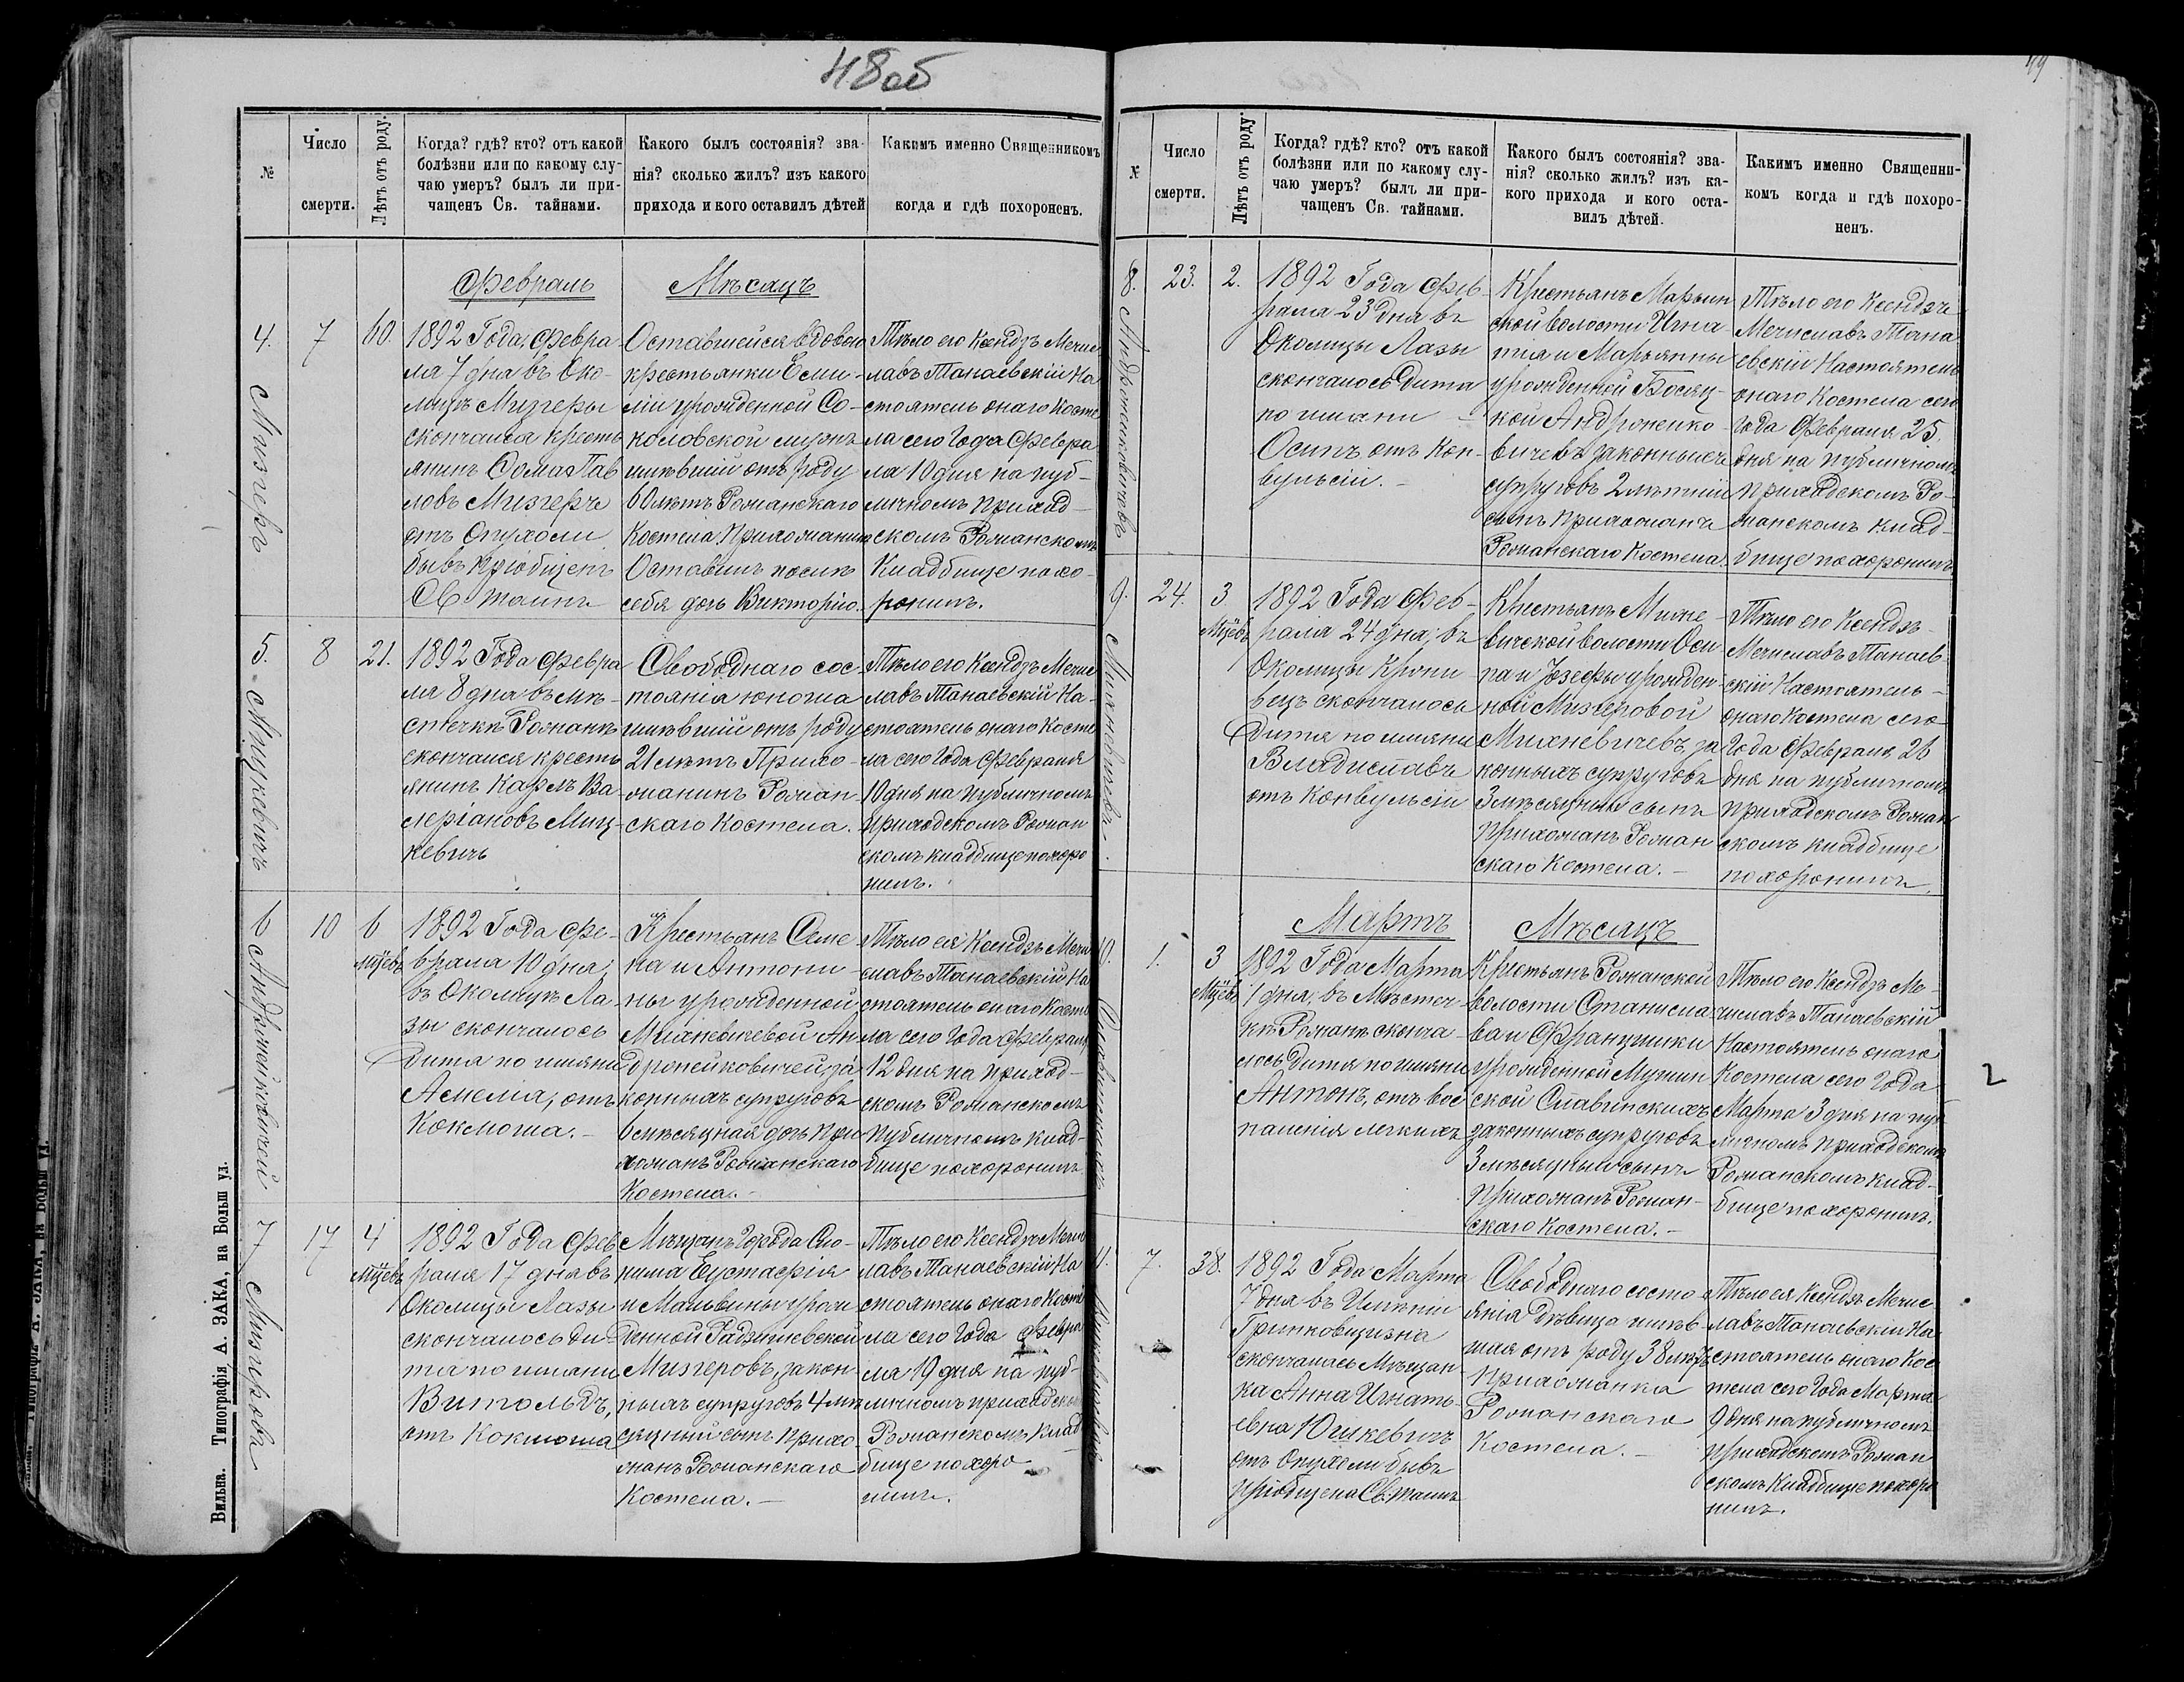 48об
№
Число
смерти.
Лѣтъ отъ роду.
Когда? гдѣ? кто? отъ какой
болѣзни или по какому слу-
чаю умеръ? былъ ли при-
чащенъ Св. тайнами.
Какого былъ состоянія? зва-
нія? сколько жилъ? изъ какого
прихода и кого оставилъ дѣтей
Какимъ именно Священникомъ
когда и гдѣ похороненъ.
Февраль
Мѣсяцъ
4.
Мизгеръ
7
60.
1892 Года, Февра
ля 7 дня въ Око-
лицѣ Мизгеры
скончался кресть
янинъ Фома Пав
ловъ Мизгеръ
отъ Опухоли
бывъ пріобщенъ
Св Таинъ
Оставшейся вдовою
крестьянки Еми-
ліи урожденной Со-
коловской мужъ
имѣвшій отъ роду
60 лѣтъ Роман­скаго
Костела Прихожанинъ
Оставилъ послѣ
себя дочь Викторію.
Тѣло его Ксендзъ Мечис
лавъ Танаевскій На
стоятель онаго Косте
ла сего Года Февра
ля 10 дня на пуб-
личномъ приход-
скомъ Романскомъ
Кладбище похо-
ронилъ.
5.
Мицкевичъ
8
21.
1892 Года Февра
ля 8 дня въ мѣ-
стечкѣ Романѣ
скончался кресть
янинъ Карлъ Ва-
леріановъ Миц-
кевичъ
Свободнаго сос-
тоянія юноша
имѣвшій отъ роду
21 лѣтъ Прихо-
жанинъ Роман-
скаго Костела.
Тѣло его Ксендзъ Мечис
лавъ Танаевскій На-
стоятель онаго Косте
ла сего Года Февраля
10 дня на публичномъ
приходскомъ Роман
скомъ кладбище похоро
нилъ.
6
10
6
мцевъ
1892 Года Фе-
врала 10 дня;
въ Околицѣ Ла-
зы скончалось
Дитя по имяни
Амелія, отъ
Коклюша.-
Крестьянъ Семе
на и Антони-
ны урожденной
законныхъ супруговъ
6 мѣсяцная дочь при
хожанъ Романскаго
Костела.-
Тѣло ея Ксендзъ Мечи
славъ Танаевскій На
стоятель онаго Косте
ла сего Года Февраля
12 дня на приход-
скомъ Романскомъ
публичномъ клад-
бище похоронилъ.
7
Мизгеровъ
17
4
мцевъ
1892 Года Фев
раля 17 дня въ
Околицы Лазы
скончалось ди
тя по имяни
Витольдъ,
отъ Коклюша
Мѣщанъ Города Сло-
нима Евстафія
и Мальвины урож
денной
Мизгеровъ, закон-
ныхъ супруговъ 4 мѣ
сяцный сынъ прихо-
жанъ Романскаго
Костела.-
Тѣло его Ксендзъ Мечис
лавъ Танаевскій На
стоятель онаго Косте
ла сего Года Февра
ля 19 дня на пуб-
личномъ приходском
Романскомъ клад
бище похоро
нилъ.
Вильна. Типографія А. ЗАКА, на Больш ул.
49
№
Число
смерти.
Лѣтъ отъ роду.
Когда? гдѣ? кто? отъ какой
болѣзни или по какому слу-
чаю умеръ? былъ ли при-
чащенъ Св. тайнами.
Какого былъ состоянія? зва-
нія? сколько жилъ? изъ ка-
кого прихода и кого оста-
вилъ дѣтей.
Какимъ именно Священни-
комъ когда и гдѣ похоро-
ненъ.
8.
23.
2.
1892 Года Фев-
рала 23 дня въ
Околицы Лазы
скончалось Дитя
по имяни -
Осипъ отъ Кон-
вульсіи.-
Крестьянъ Марьин
ской волости Игна-
тія и Марьянны
урожденной
законныхъ
супруговъ 2 лѣтній
сынъ Прихожанъ
Романскаго Костела.
Тѣло его Ксендзъ
Мечиславъ Тана
евскій Настоятель
онаго Костела сего
Года Февраля 25
дня на публичномъ
приходскомъ Ро-
манскомъ клад-
бище похоронилъ.
9.
Михневичевъ.
24.
3
Мцевъ
1892 Года Фев-
раля 24 дня; въ
Околицы
скончалось
Дитя по имяни
Владиславъ
отъ конвульсіи
Крестьянъ Миже
вичской волости Оси
па и Юзефы урожден-
ной Мизгеровой
Михневичевъ за
конныхъ супруговъ
3 мѣсяцный сынъ
прихожанъ Роман
скаго Костела.-
Тѣло его Ксендзъ-
Мечиславъ Танаев-
скій Настоятель-
онаго Костела сего
Года Февраля, 26
дня на публичномъ
приходскомъ Роман
скомъ кладбище
похоронилъ.
Мартъ
Мѣсяцъ
10.
1.
3
Мцевъ
1892 Года Марта
1 дня, въ Мѣстеч-
кѣ Романѣ сконча-
лось Дитя по имяни
Антонъ, отъ вос
паленія легкихъ
Крестьянъ Романской
волости Станисла
ва и Францишки
урожденной
Славинскихъ
законныхъ супруговъ
3 мѣсяцный сынъ
Прихожанъ Роман-
скаго Костела.-
Тѣло его Ксендзъ Ме-
числавъ Танаевскій
Настоятель онаго
Костела сего Года
Марта 3 дня на пуб
личномъ приходскомъ
Романскомъ клад-
бище похоронилъ.
2
11.
7.
38.
1892 Года Марта
7 дня въ Имѣніи
Гринковщизна
скончалась Мѣщан-
ка Анна Игнать-
евна Юшкевичъ
отъ Опухоли бывъ
пріобщена Св. Таинъ
Свободнаго состо
янія Дѣвица имѣв-
шая отъ роду 38 лѣтъ
Прихожанка
Романскаго
Костела.-
Тѣло ея Ксендзъ Мечис
лавъ Танаевскій На-
стоятель онаго Кос
тела сего Года Марта
9 дня на публичномъ
приходскомъ Роман
скомъ Кладбище похоро
нилъ.